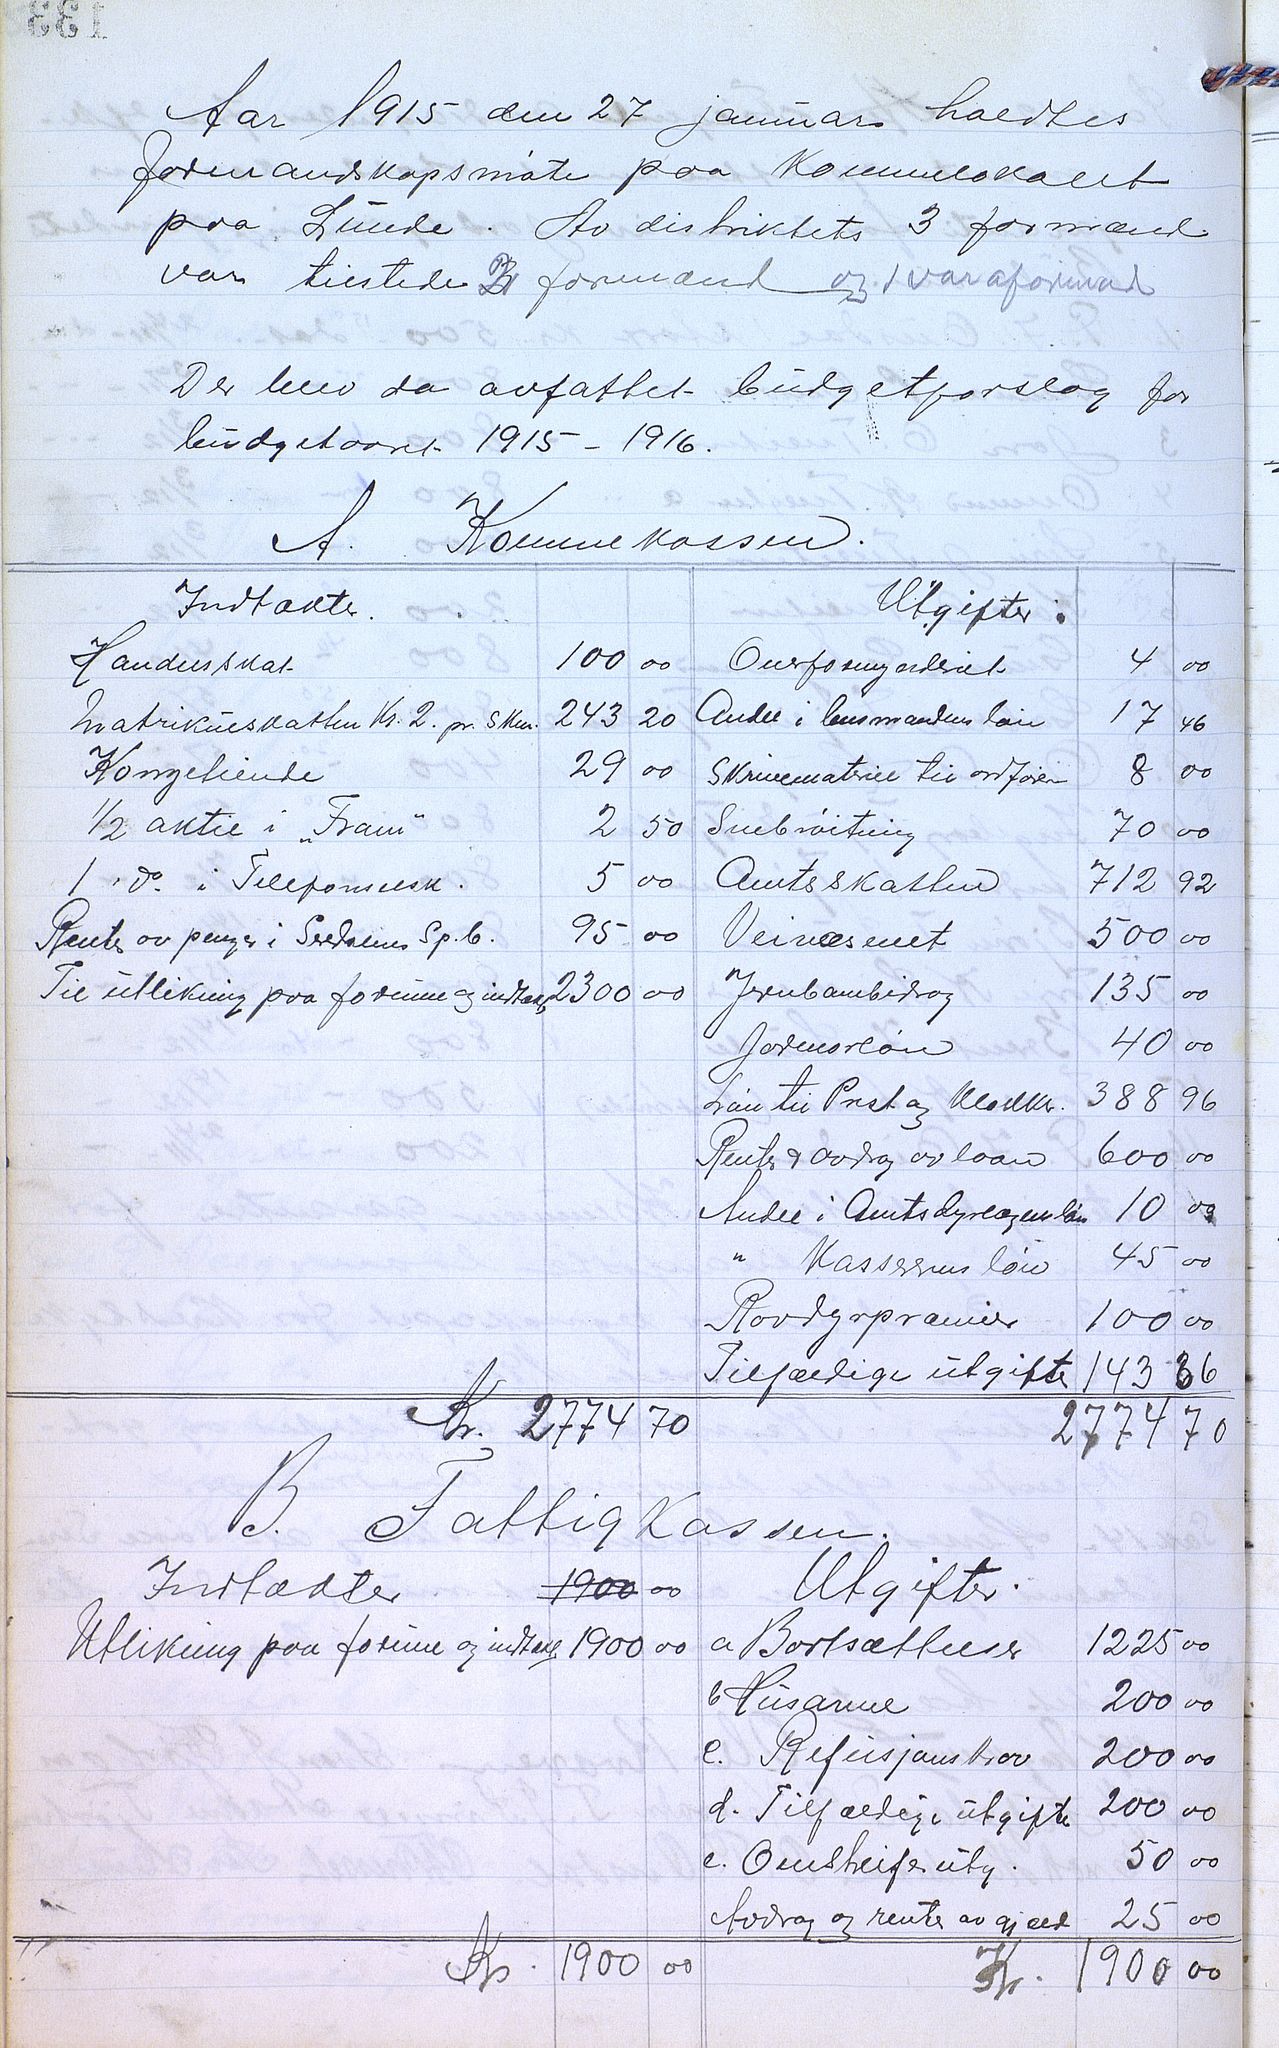 133
Aar 1915 den 27 januar holdtes
formandskapsmöte paa Kommunelokalet
paa Lunde. Av distriktets 3 formænd
var tilstede 2 formænd og 1 varaformand
Der blev da avfattet budgetforslag for
budgetaaret 1915 - 1916.
A. Kommunekassen.
Indtækter. Utgifter.
Handelsskat 100 00 Overformynderiet 4 00
Matrikulskatten Kr. 2. pr. Skm. 243 20 Andel i lensmandens lön 17 46
Kongetiende 29 00 Skrivematriel til ordförer 8 00
1/2 aktie i „Fram" 2 50 Snebröitning 70 00
1 do. i Telefonselsk. 5 00 Amtsskatten 712 92
Renter av penger i Sp.b. 95 00 Veivæsenet 500 00
Til utlikning paa formue og indtægt 2300 00 Jernbanebidrag 135 00
Jormorlön 40 00
Lön til Prest og Klokker. 388 96
Renter & avdrag av laan 600 00
Andel i Amtsdyrlægens lön 10 00
" Kassererens lön 45 00
Rovdyrpræmier 100 00
Tilfældige utgifter 143 36
Kr. 2774 70 2774 70
B. Fattigkassen.
Indtækter 1900 00 Utgifter.
Utlikning paa formue og indtægt 1900 00 a Bortsættelser 1225 00
b Husarme 200 00
c. Refusjonskrav 200 00
d. Tilfældige utgifter 200 00
e. Omstreiferutg. 50 00
Avdrag og renter av gjæld 25 00
Kr. 1900 00 Kr. 1900 00